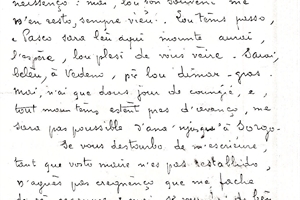 neissènço : mai, lou bon souveni me
n'en resto, sempre vièu. Lou tèms passo,
e Pasco sara lèu aqui mounte aurai,
l'espère, lou plesi de vous vèire. Sarai,
belèu, à Vedeno, pèr lou dimar-gras.
Mai, n'ai que dous jour de coungié, e,
tout moun tèms estent pas d'avanço, me
sara pas poussible d'ana njusqu'à Sorgo.
Se vous destourbo de m'escriéure,
tant que vosto maire n'es pas restablido,
n'aguès pas cregnènço que me fache